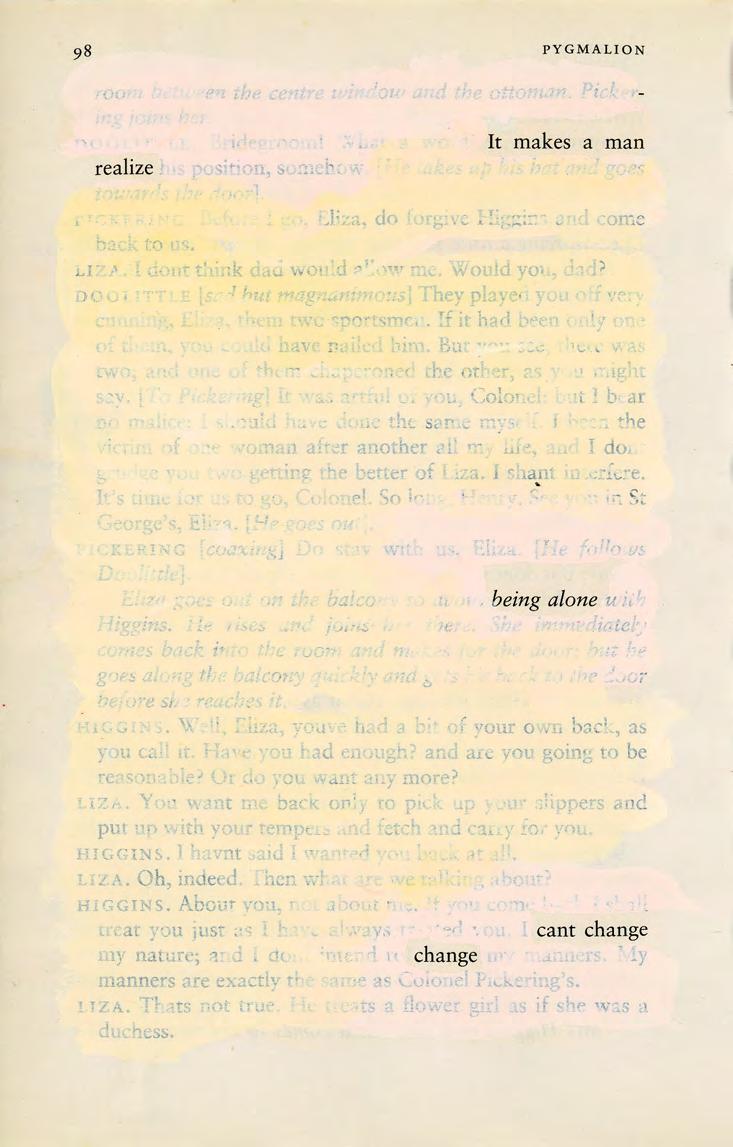 98 PYGMALION
room between the centre window and the ottoman. Picker-
ing joins her.
DOOLITTLE. Bridegroom! What a word! It makes a man
realize his position, somehow. [He takes up his hat and goes
towards the door].
PICKERING. Before I go, Eliza, do forgive Higgins and come
back to us.
LIZA. I dont think dad would allow me. Would you, dad?
DOOLITTLE [sad but magnanimous] They played you off very
cunning, Eliza, them two sportsmen. If it had been only one
of them, you could have nailed him. But you see, there was
two; and one of them chaperoned the other, as you might
say. [To Pickering] It was artful of you, Colonel; but I bear
no malice: I should have done the same myself. I been the
victim of one woman after another all my life, and I dont
grudge you two getting the better of Liza. I shant interfere.
It's time for us to go, Colonel. So long, Henry. See you in St
George's, Eliza. [He goes out].
PICKERING [coaxing] Do stay with us, Eliza. [He follows
Doolittle].
Eliza goes out on the balcony to avoid being alone with
Higgins. He rises and joins her there. She immediately
comes back into the room and makes for the door; but he
goes along the balcony quickly and gets his back to the door
before she reaches it.
HIGGINS. Well, Eliza, youve had a bit of your own back, as
you call it. Have you had enough? and are you going to be
reasonable? Or do you want any more?
LIZA. You want me back only to pick up your slippers and
put up with your tempers and fetch and carry for you.
HIGGINS. I havnt said I wanted you back at all.
LIZA. Oh, indeed. Then what are we talking about?
HIGGINS. About you, not about me. If you come back I shall
treat you just as I have always treated you. I cant change
my nature; and I dont intend to change my manners. My
manners are exactly the same as Colonel Pickering's.
LIZA. Thats not true. He treats a flower girl as if she was a
duchess.